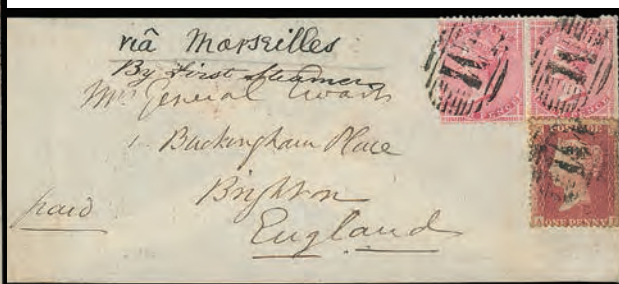 viâ Marseilles
By First Steamer
Mrs General
1. Buckingham Place
Brighton
England
paid
PENCE
PENCE
ONE PENNY